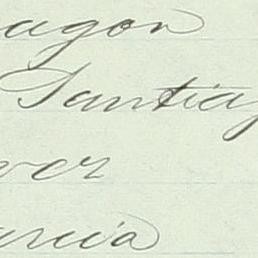 agon
Santiag
ver
arcia